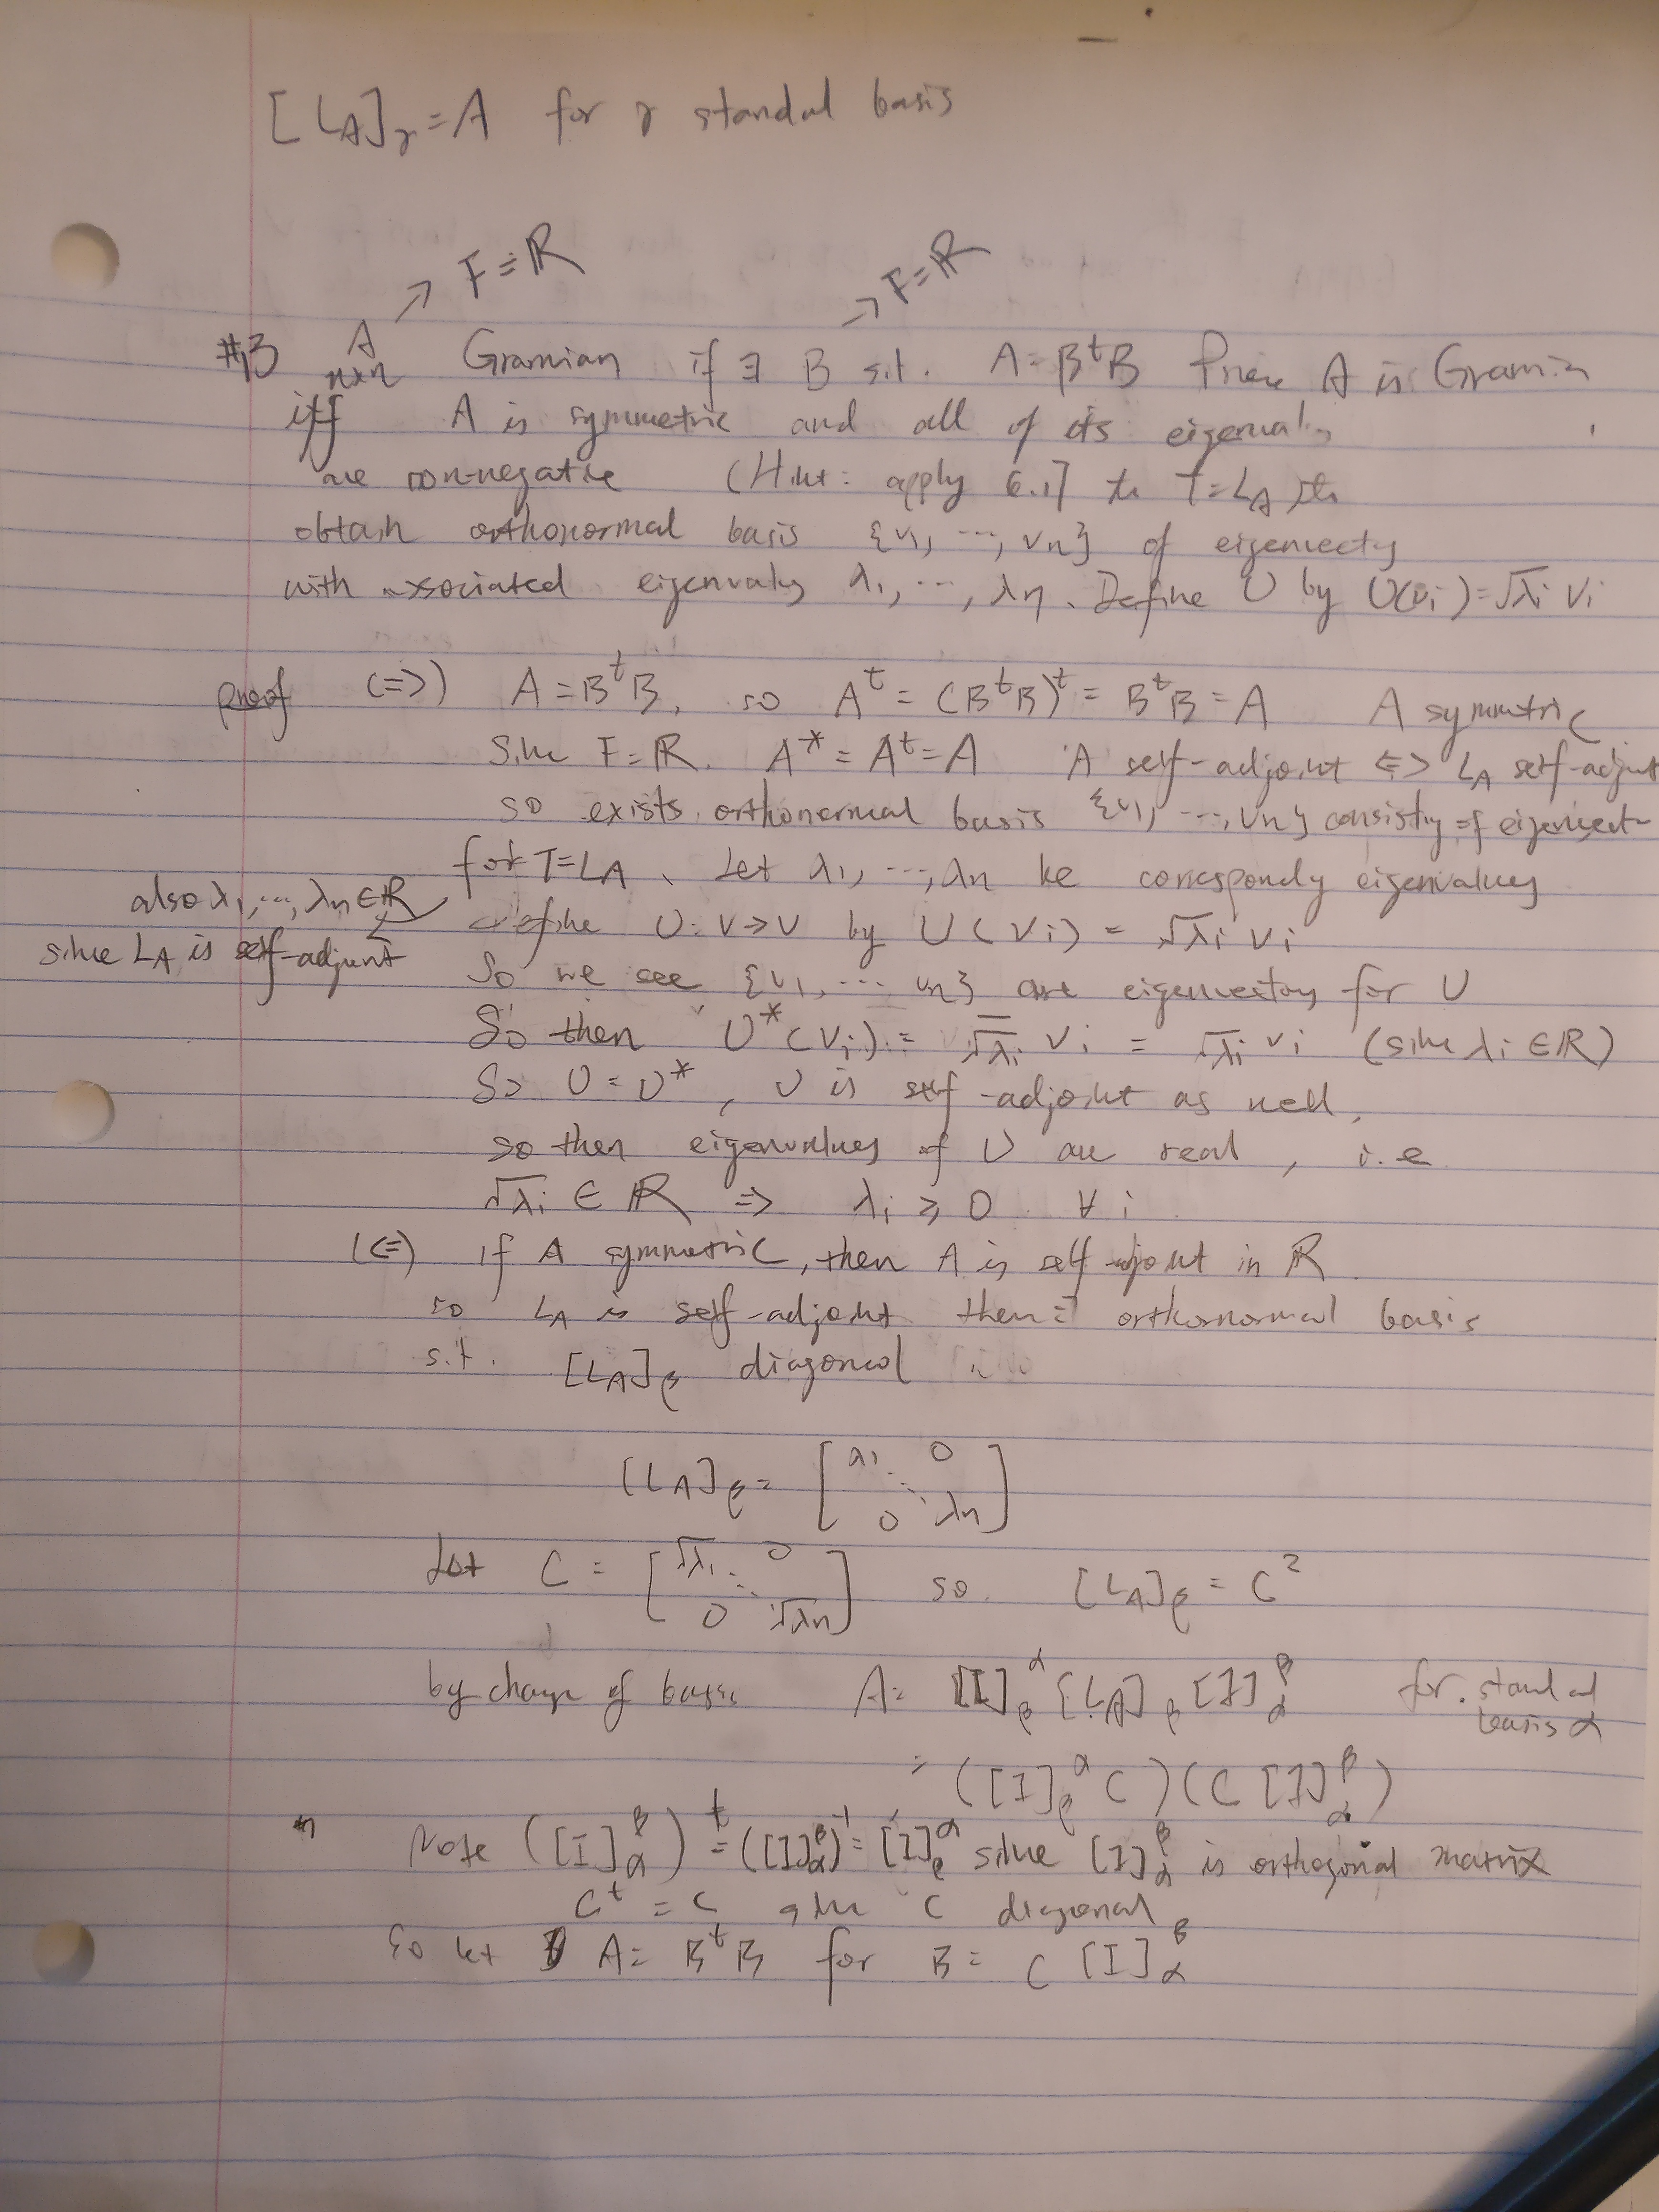 [L_A]_γ = A for γ standard basis
→ F = ℝ → F = ℝ
#13 A n×n Gramian if ∃ B s.t. A = B^t B Prove A is Gramian
iff A is symmetric and all of its eigenvals
are non-negative (Hint: apply 6.17 to T = L_A to
obtain orthonormal basis {v1, ..., vn} of eigenvectors
with associated eigenvalues λ1, ..., λn. Define U by U(vi) = √λi vi
proof (=>) A = B^t B, so A^t = (B^t B)^t = B^t B = A A symmetric
Since F = ℝ. A* = A^t = A A self-adjoint <=> L_A self-adjoint
so exists orthonormal basis {v1, ..., vn} consisting of eigenvect
for T = L_A. Let λ1, ..., λn be corresponding eigenvalues
also λ1, ..., λn ∈ ℝ
since L_A is self-adjoint
define U: V → V by U(vi) = √λi vi
So we see {v1, ... vn} are eigenvectors for U
So then U*(vi) = \overline{√λi} vi = √λi vi (since λi ∈ ℝ)
So U = U*, U is self-adjoint as well,
so then eigenvalues of U are real, i.e
√λi ∈ ℝ => λi ≥ 0 ∀ i
(<=) if A symmetric, then A is self adjoint in ℝ
so L_A is self-adjoint then ∃ orthonormal basis
s.t. [L_A]_β diagonal
[L_A]_β = [λ1 0
⋱
0 λn]
Let C = [√λ1 0
⋱
0 √λn] so [L_A]_β = C²
by change of basis A = [I]_β^α [L_A]_β [I]_α^β for standard
basis α
= ([I]_β^α C)(C [I]_α^β)
Note ([I]_α^β)^t = ([I]_α^β)^-1 = [I]_β^α since [I]_α^β is orthogonal matrix
C^t = C since C diagonal
So let A = B^t B for B = C [I]_α^β